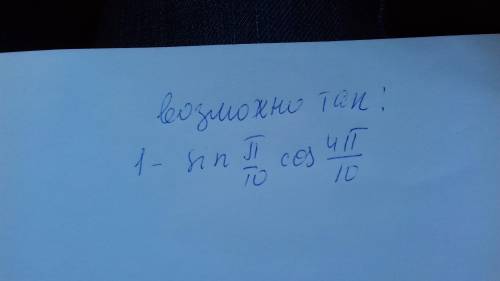 возможно так:
1 - sin π/10 cos 4π/10